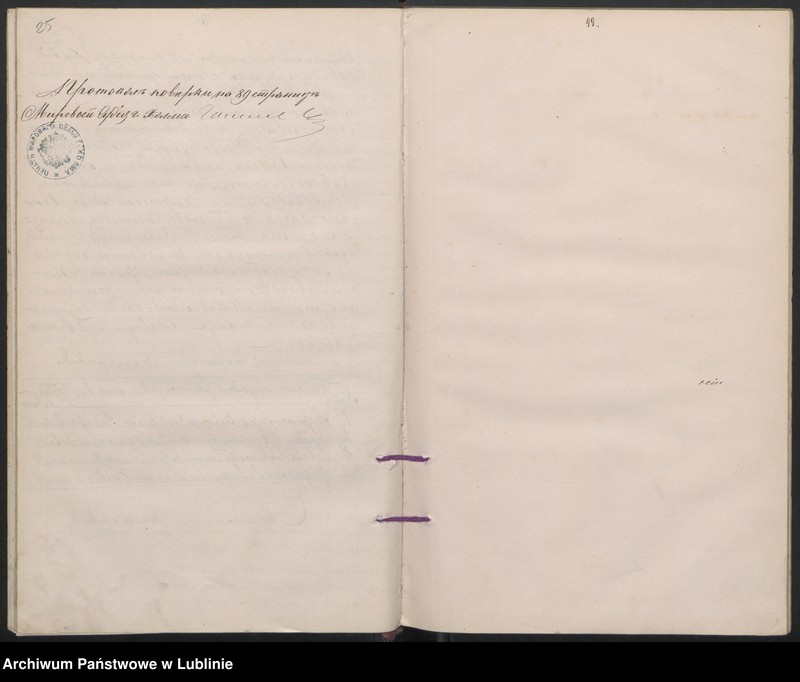 25
Протоколъ поверки на 89 страницѣ
Мировый Судья г. Холма
19.
Archiwum Państwowe w Lublinie